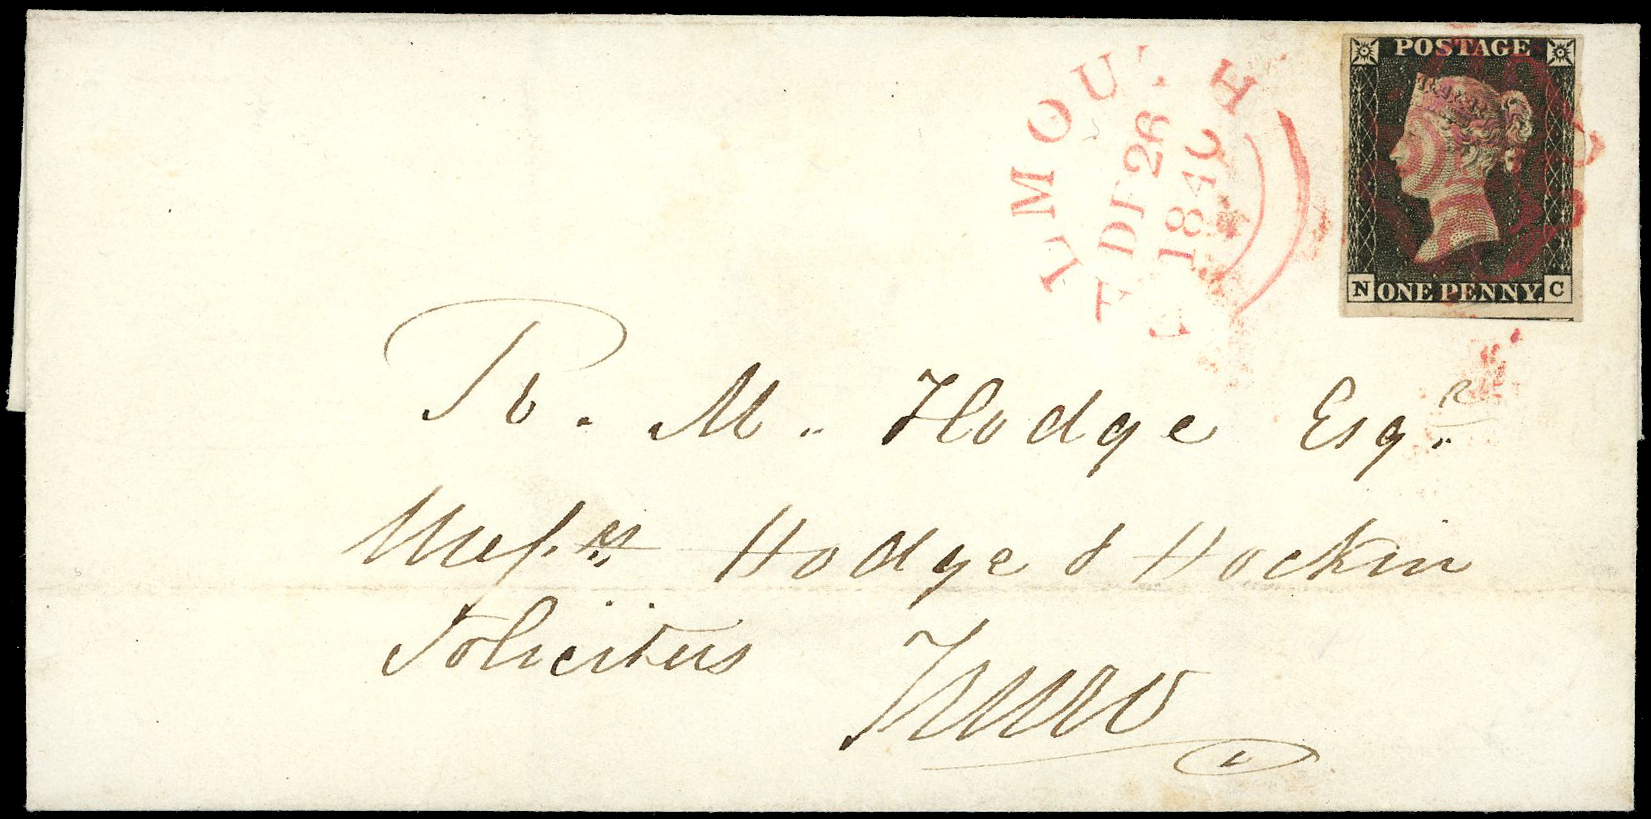 POSTAGE
N ONE PENNY. C
LMOUTH
DE 26
1840
M. Hodge Esqr
Messrs Hodge & Hockin
Solicitors Truro